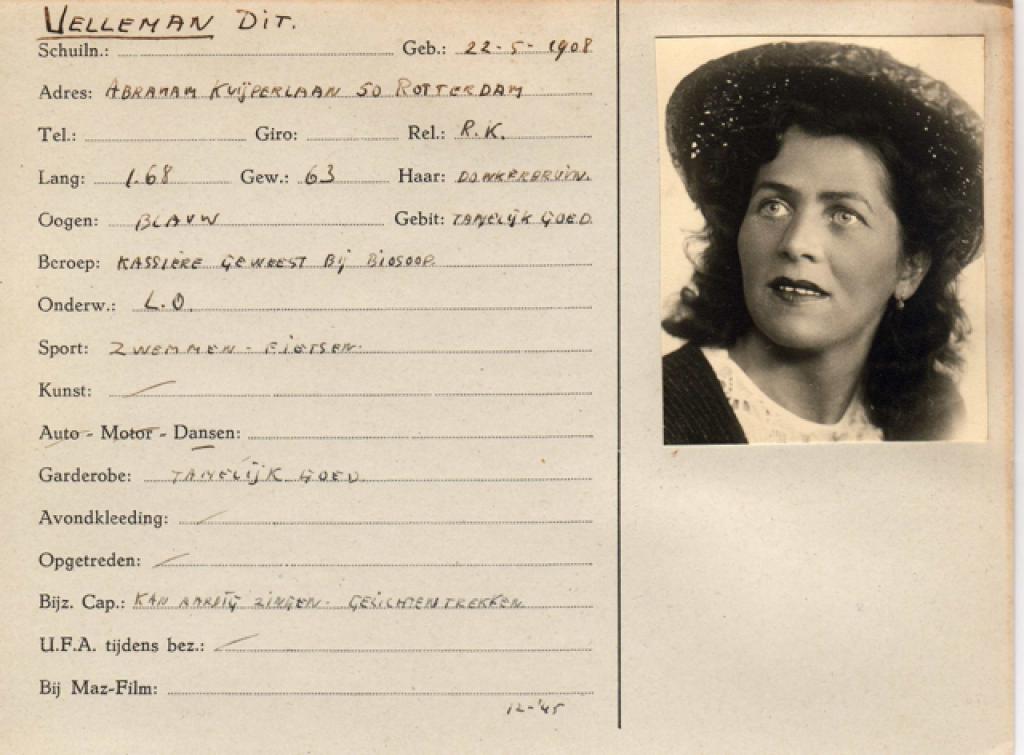 VELLEMAN DIT.
Schuiln.: Geb.: 22-5-1908
Adres: ABRAHAM KUIJPERLAAN 50 ROTTERDAM
Tel.: Giro: Rel.: R.K.
Lang: 1.68 Gew.: 63 Haar: DONKERBRUIN.
Oogen: BLAUW Gebit: TAMELIJK GOED
Beroep: KASSIERE GEWEEST BIJ BIOSOOP.
Onderw.: L.O.
Sport: ZWEMMEN - FIETSEN.
Kunst: /
Auto - Motor - Dansen:
Garderobe: TAMELIJK GOED
Avondkleeding: /
Opgetreden: /
Bijz. Cap.: KAN AARDIG ZINGEN - GEZICHTEN TREKKEN
U.F.A. tijdens bez.: /
Bij Maz-Film:
12-'45